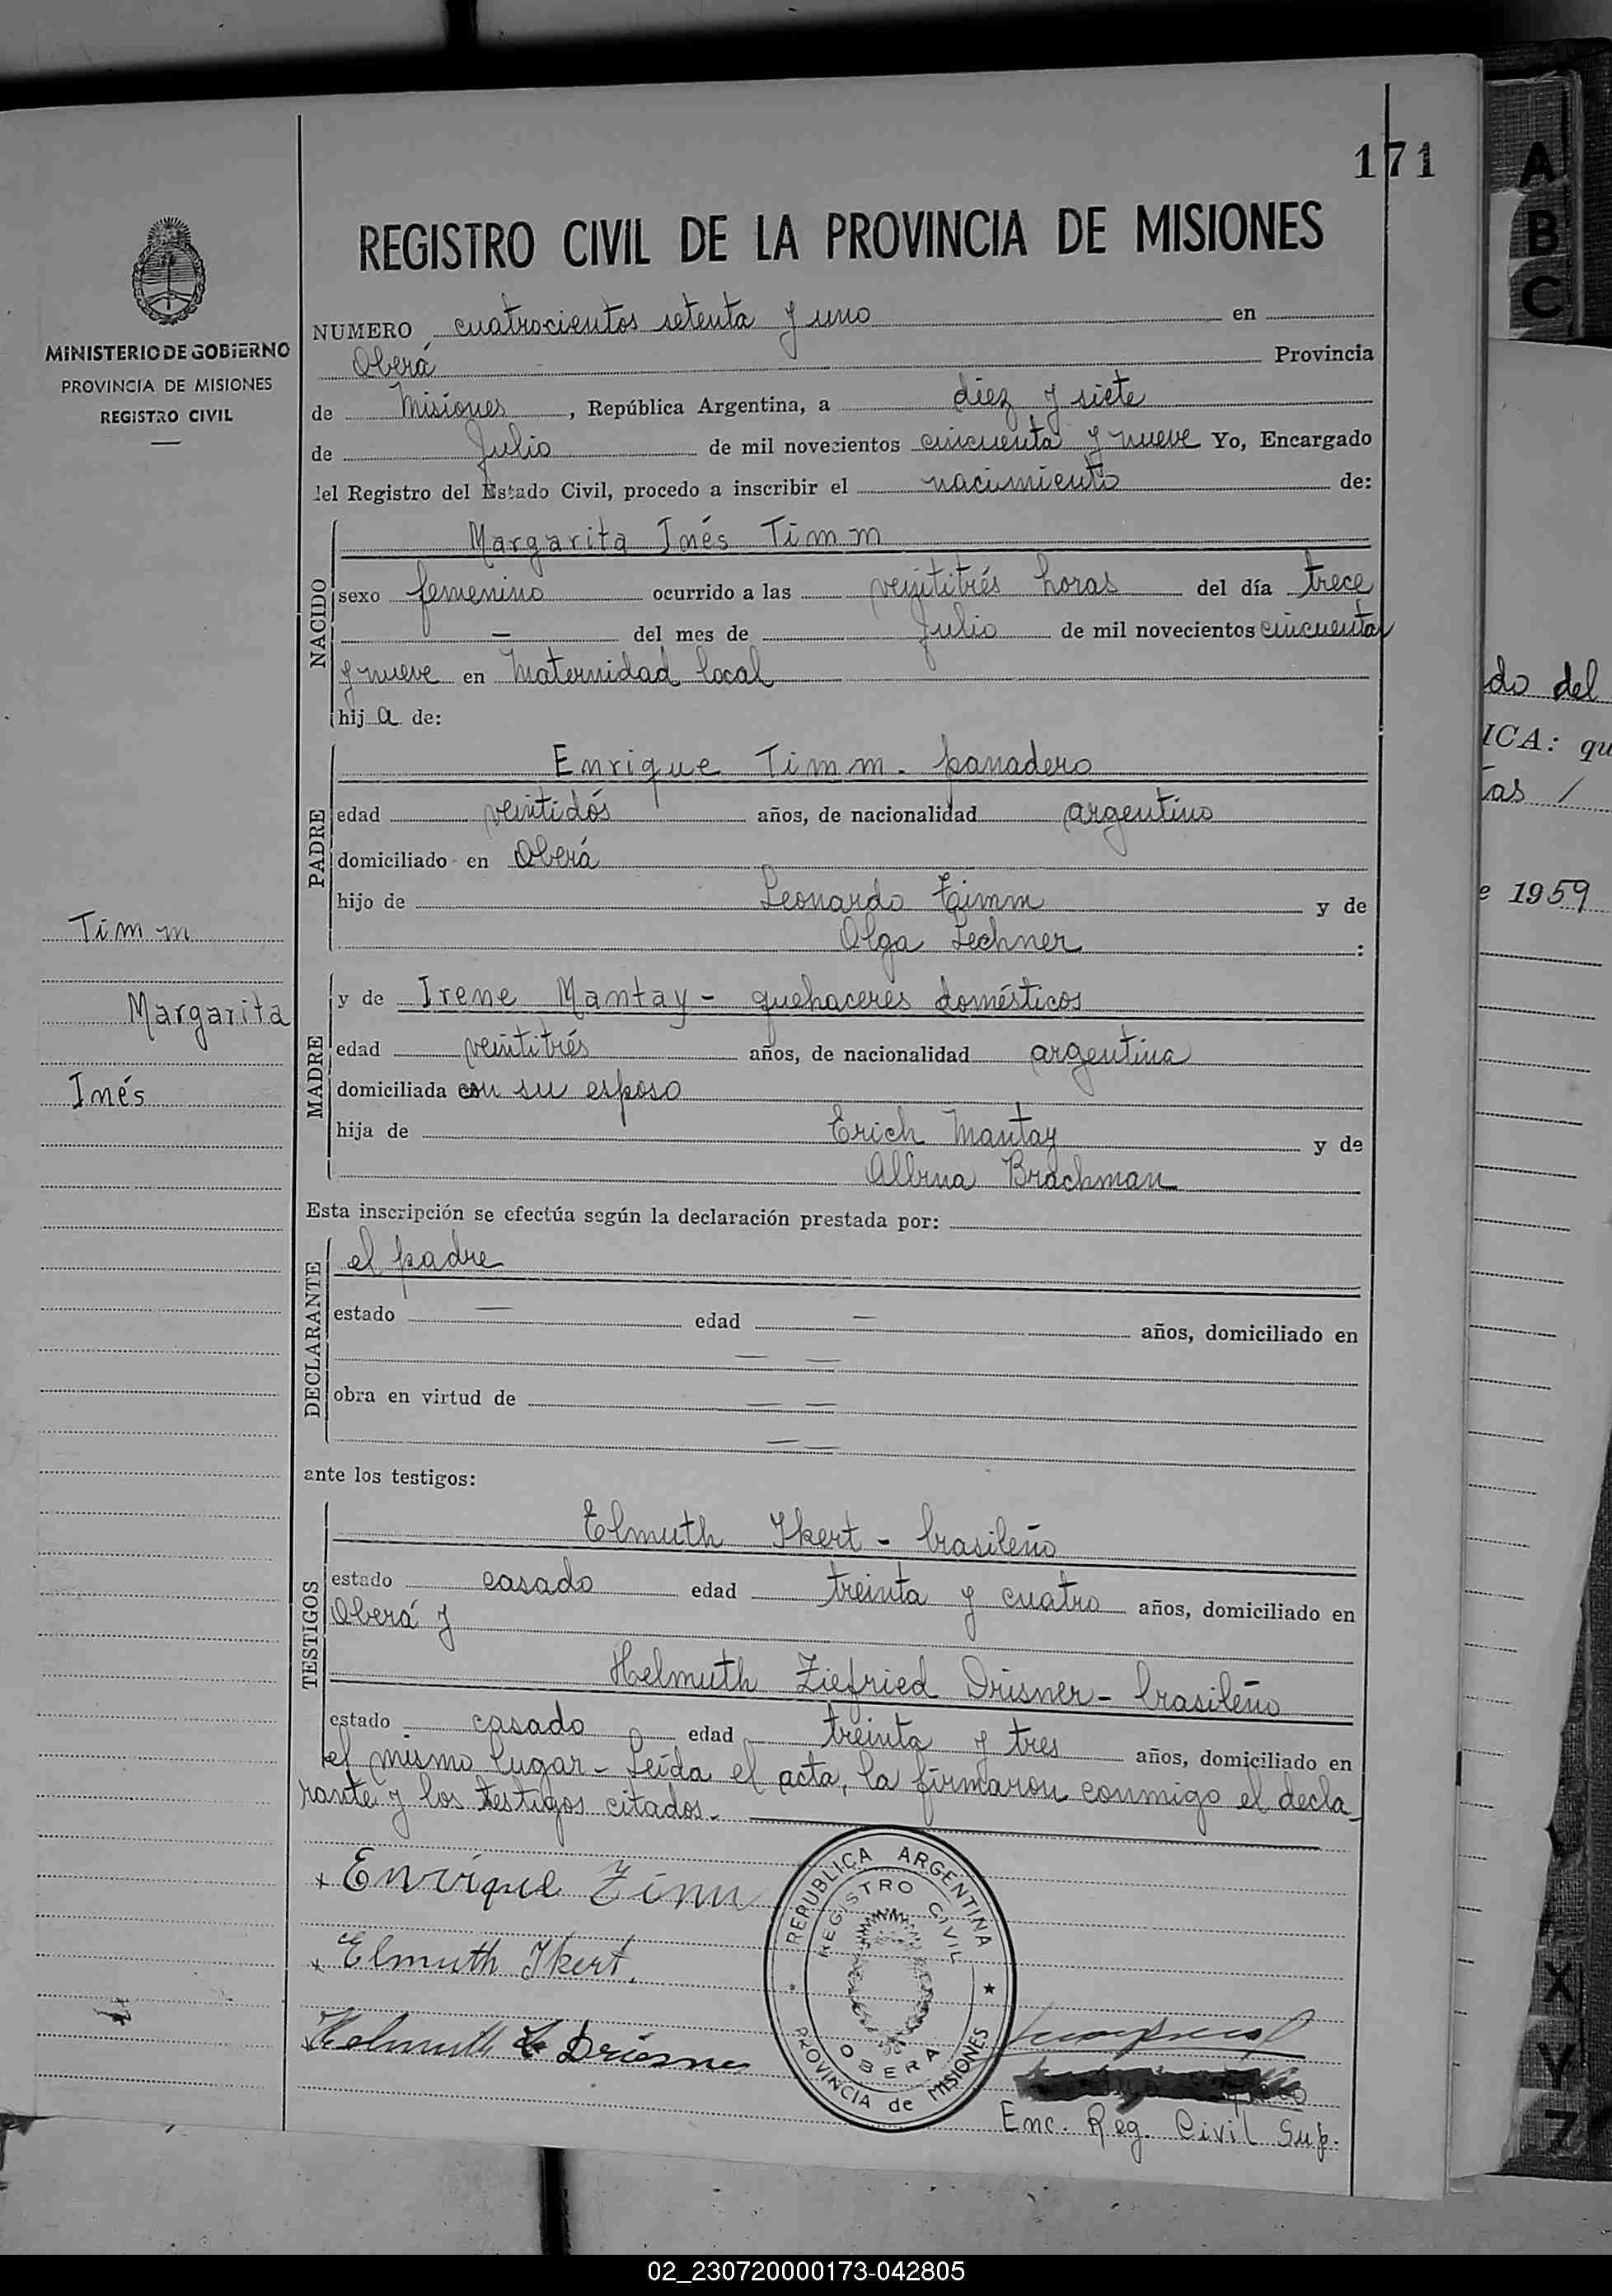 171
REGISTRO CIVIL DE LA PROVINCIA DE MISIONES
MINISTERIO DE GOBIERNO
PROVINCIA DE MISIONES
REGISTRO CIVIL
NUMERO cuatrocientos setenta y uno en
Oberá Provincia
de Misiones, República Argentina, a diez y siete
de Julio de mil novecientos cincuenta y nueve Yo, Encargado
del Registro del Estado Civil, procedo a inscribir el nacimiento de:
NACIDO
Margarita Inés Timm
sexo femenino ocurrido a las veintitrés horas del día trece
— del mes de Julio de mil novecientos cincuenta
y nueve en Maternidad local
hija de:
PADRE
Enrique Timm - panadero
edad veintidós años, de nacionalidad argentino
domiciliado en Oberá
hijo de Leonardo Timm y de
Olga Lechner :
Timm
Margarita
Inés
MADRE
y de Irene Mantay - quehaceres domésticos
edad veintitrés años, de nacionalidad argentina
domiciliada con su esposo
hija de Erich Mantay y de
Albina Brachman
Esta inscripción se efectúa según la declaración prestada por:
DECLARANTE
el padre
estado — edad — años, domiciliado en
— —
obra en virtud de — —
— —
ante los testigos:
TESTIGOS
Elmuth Ikert - brasileño
estado casado edad treinta y cuatro años, domiciliado en
Oberá y
Helmuth Ziefried Drisner - brasileño
estado casado edad treinta y tres años, domiciliado en
el mismo lugar - Leída el acta, la firmaron conmigo el decla
rante y los testigos citados. —
x Enrique Timm
x Elmuth Ikert.
Helmuth
REPUBLICA ARGENTINA
REGISTRO CIVIL
OBERA
PROVINCIA de MISIONES
Enc. Reg. Civil Sup.
do del
ICA: qu
tas /
e 1959
A
B
C
X
Y
Z
02_230720000173-042805